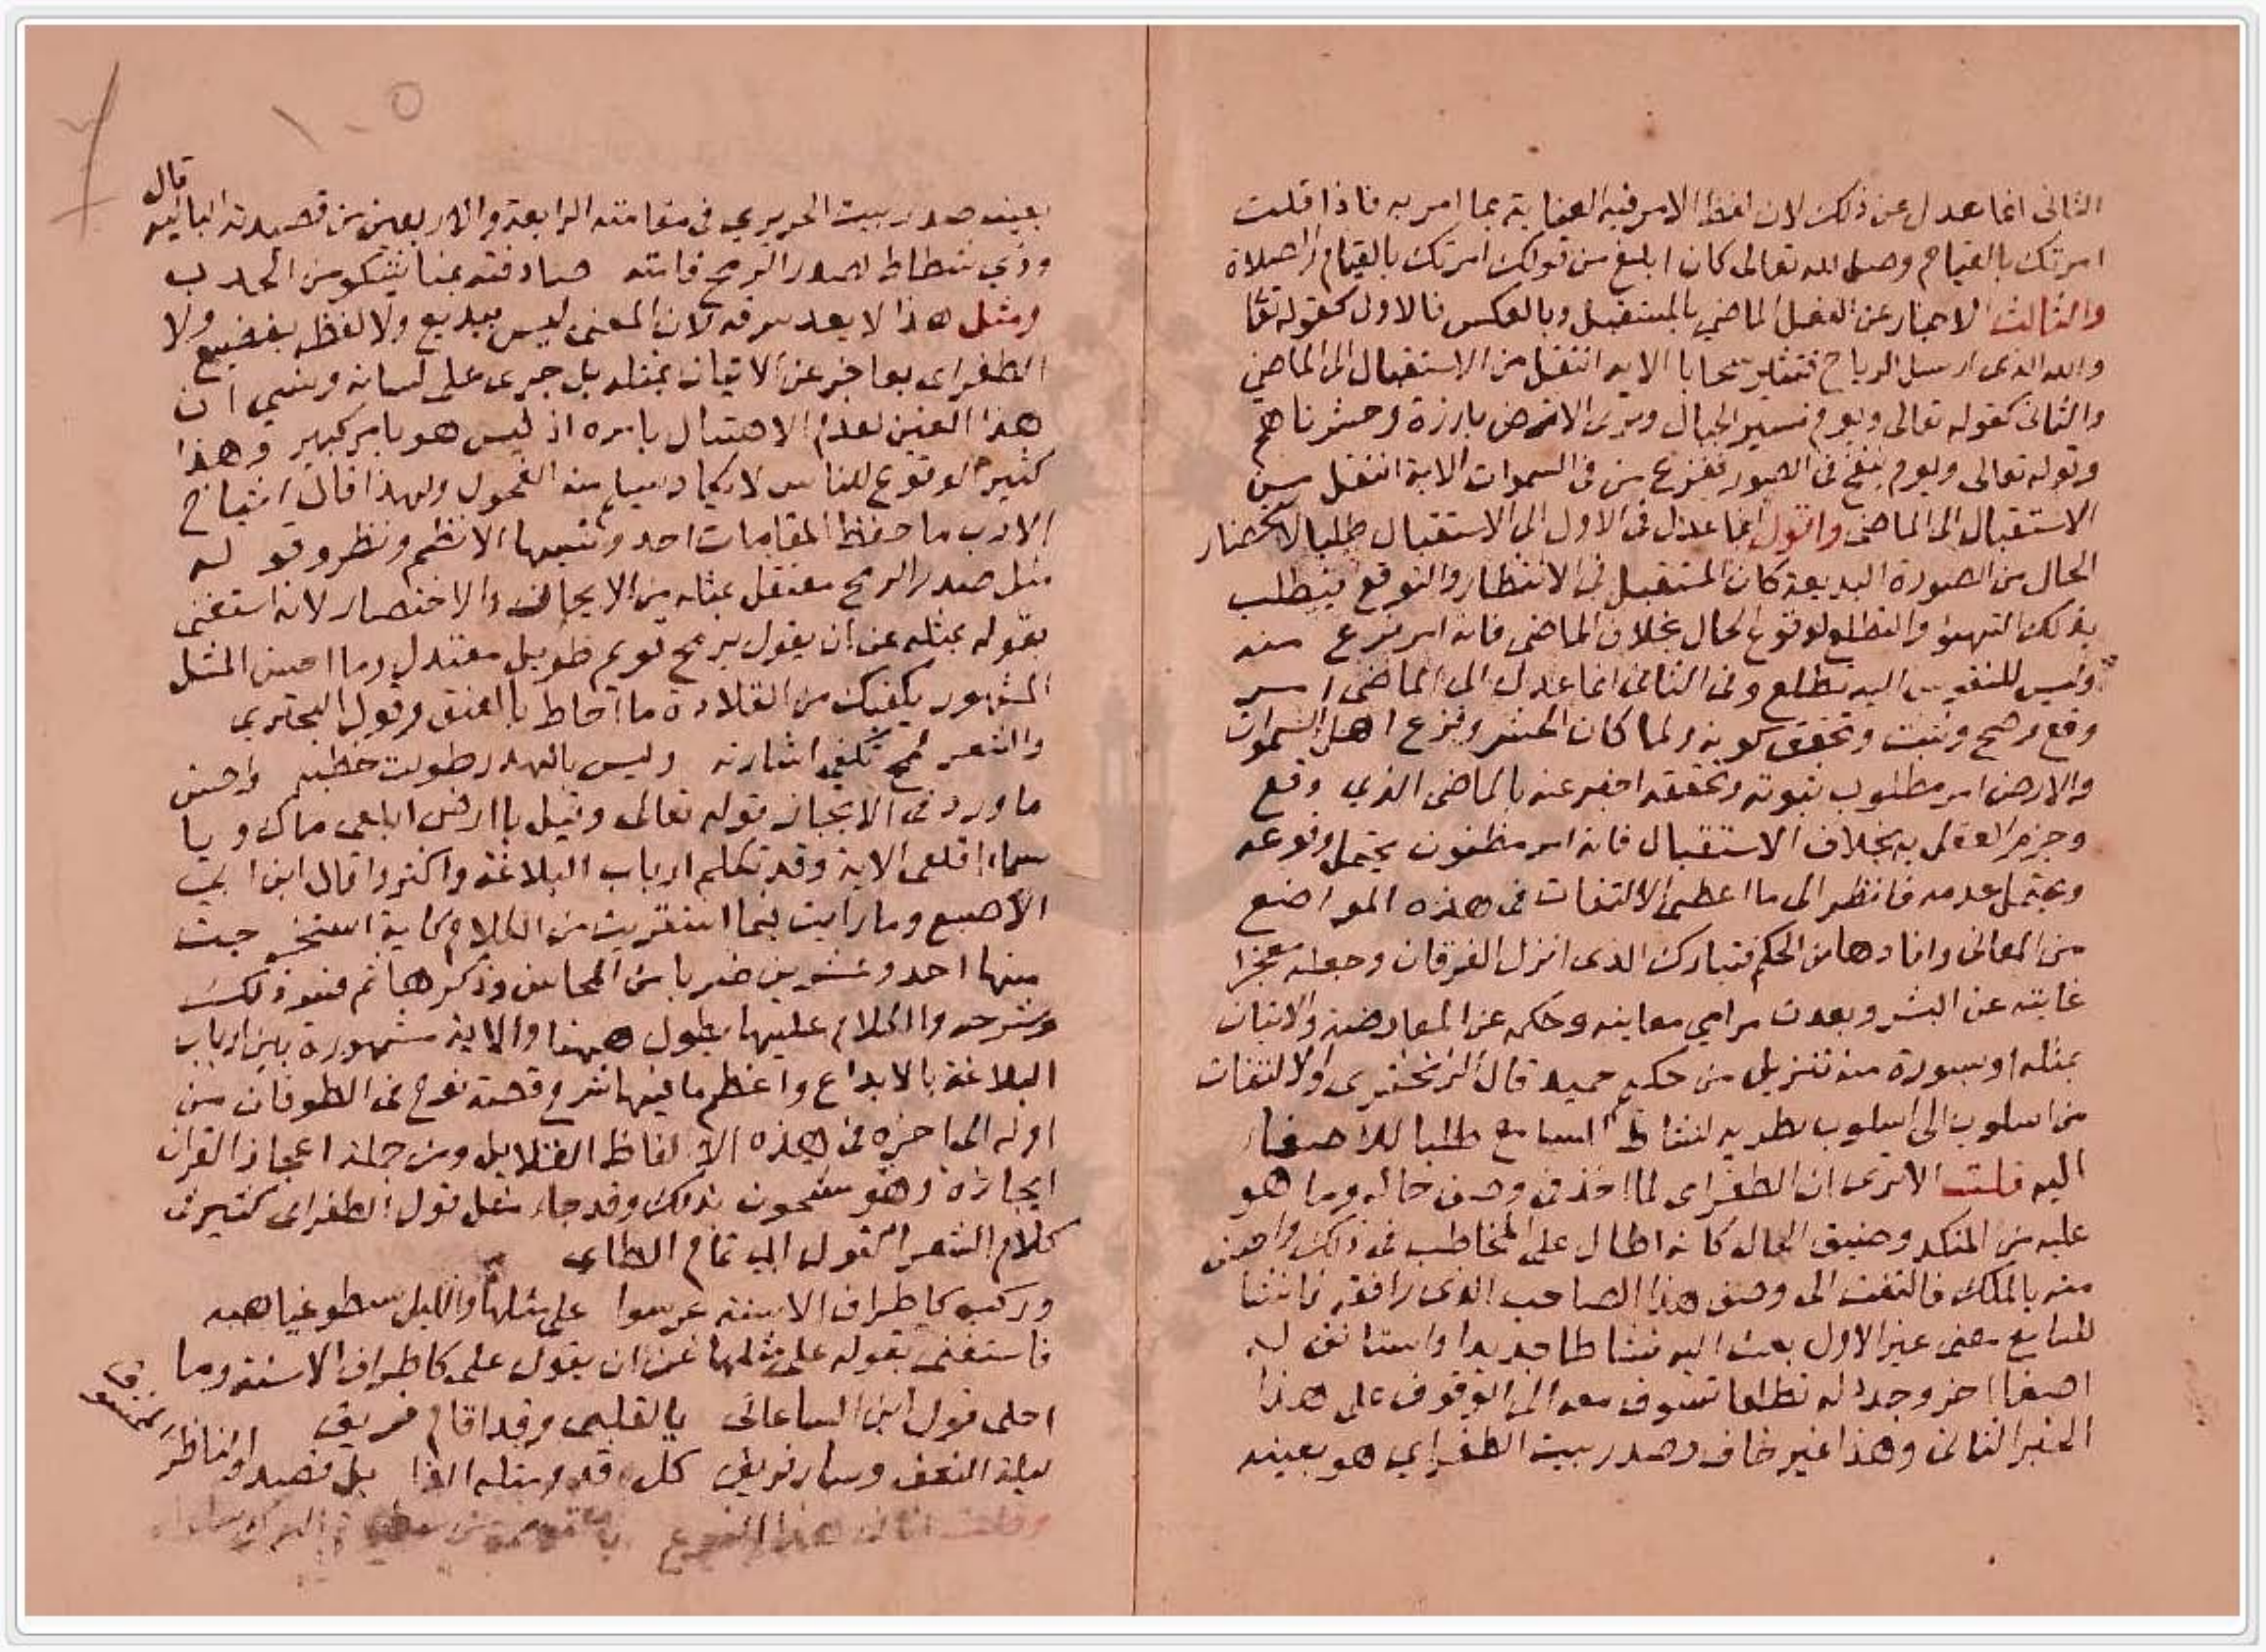 الثانى انما عدل عن ذلك لان لفظ الامر فيه العناية بما امر به فاذا قلت
امرتك بالقيام وصل لله تعالى كان ابلغ من قولك امرتك بالقيام والصلاة
والثالث الاخبار عن الفعل الماضي بالمستقبل وبالعكس فالاول كقوله تعا
والله الذى ارسل الرياح فتثير سحابا الاية انتقل من الاستقبال الى الماضي
والثانى كقوله تعالى ويوم نسير الجبال وترى الارض بارزة وحشرناهم
وقوله تعالى ويوم ينفخ فى الصور ففزع من فى السموات الاية انتقل من
الاستقبال الى الماضى واقول انما عدل فى الاول الى الاستقبال طلبا لاستحضار
الحال من الصورة البديعة كان المستقبل فى الانتظار والتوقع فيطلب
بذلك التهيؤ والتطلع لوقوع الحال بخلاف الماضى فانه امر فرغ منه
وليس للنفوس اليه تطلع وفى الثانى انما عدل الى الماضى امر
وقع وصح وثبت وتحقق كونه ولما كان الحشر وفزع اهل السموات
والارض امر مطلوب ثبوته وتحققه اخبر عنه بالماضى الذي وقع
وجزم العقل به بخلاف الاستقبال فانه امر مظنون يحتمل وقوعه
ويحتمل عدمه فانظر الى ما اعطى الالتفات فى هذه المواضع
من المعانى وافادها من الحكم فتبارك الذى انزل الفرقان وجعله معجزا
غايته عن البشر وبعدت مرامي معانيه وحكمه عن المعارضة والاتيان
بمثله او بسورة منه تنزيل من حكيم حميد قال الزمخشري والالتفات
من اسلوب الى اسلوب تطرية لنشاط السامع طلبا للاصغاء
اليه قلت الا ترى ان الطغراى لما اخذ فى وصف حاله وما هو
عليه من النكد وضيق الحال كانه اطال على المخاطب فى ذلك واحسن
منه بالملل فالتفت الى وصف هذا الصاحب الذى رافقه فانشا
للسامع معنى غير الاول بعث اليه نشاطا جديدا واستانف له
اصغاا اخر وجدد له تطلعا تشوف معه الى الوقوف على هذا
الخبر الثانى وهذا غير خاف وصدر بيت الطغراي هو بعينه
بعينه صدر بيت الحريري فى مقامته الرابعة والاربعين من قصيدته البائية قال
وذي شطاط كصدر الرمح قامته صادفته بمنا يشكو من الحدب
ومثل هذا لا يعد سرقة لان المعنى ليس ببديع ولا لفظه بفضيع ولا
الطغراى بعاجز عن الاتيان بمثله بل جرى على لسانه ونسي ان
هذا لعدم الاحتفال بامره اذ ليس هو بامر كبير وهذا
كثير الوقوع للناس لا يكاد يسلم منه الفحول ولهذا قال اشياخ
الادب ما حفظ المقامات احد وتتبعها الا نظم ونثر وقوله
مثل صدر الرمح معتقل بمثله من الايجاز والاختصار لانه استغنى
بقوله بمثله عن ان يقول برمح قويم طويل معتدل وما احسن المثل
المشهور يكفيك من القلادة ما احاط بالعنق وقول البحتري
والشعر لمح تكفى اشارته وليس بالهذر طولت خطبه واحسن
ما ورد فى الايجاز قوله تعالى وقيل يا ارض ابلعى ماك ويا
سماء اقلعى الاية وقد تكلم ارباب البلاغة واكثروا قال ابن ابي
الاصبع وما رايت فيما استقريت من الكلام كاية استخرجت
منها احد وعشرين ضربا من المحاسن وذكرها ثم فسر ذلك
وشرحه والكلام عليها يطول ههنا والاية مشهورة بين ارباب
البلاغة بالابداع واعظم ما فيها شرح قصة نوح فى الطوفان من
اوله الى اخره فى هذه الالفاظ القلايل ومن جملة اعجاز القران
ايجازه وهو مشحون بذلك وقد جاء مثل قول الطغراى كثير فى
كلام الشعر كقول ابي تمام الطاى
وركب كاطراف الاسنة عرسوا على مثلها والليل تسطو غياهبه
فاستغنى بقوله على مثلها عن ان يقول على كاطراف الاسنة وما
احلى قول ابن الساعاتى يا لقلبى وقد اقام فريق
ليلة النفر وسار فريق كل قد ومثله بل قصد او ناظر
وقلت هذا